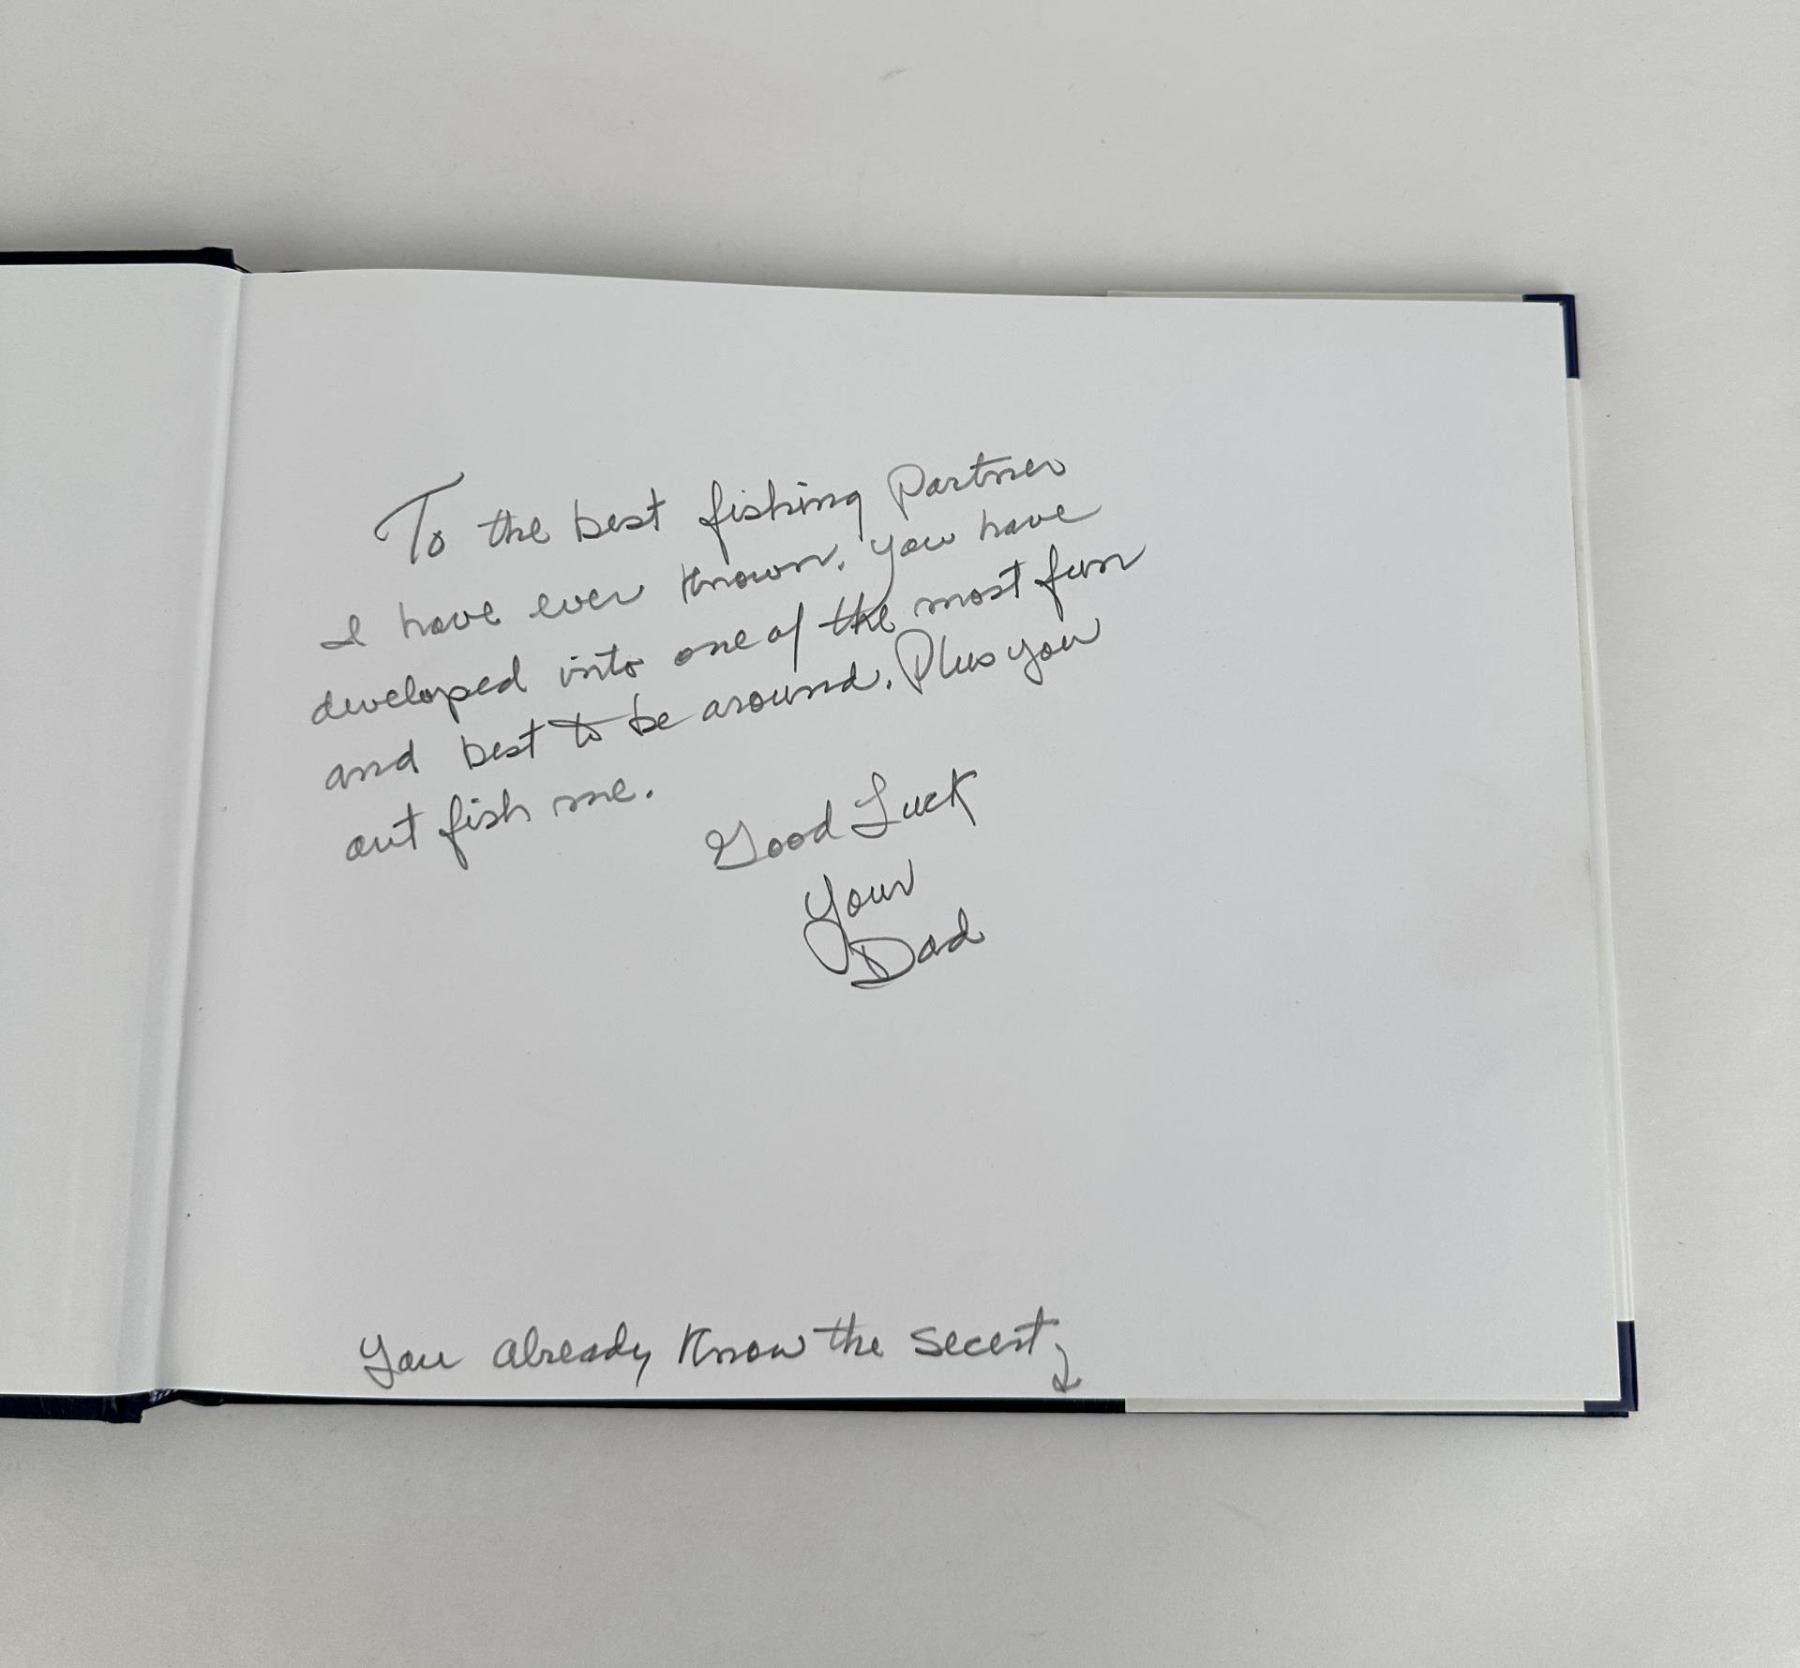 To the best fishing Partner
I have ever known. you have
developed into one of the most fun
and best to be around. Plus you
out fish me.
Good Luck
Your
Dad
You already know the secert